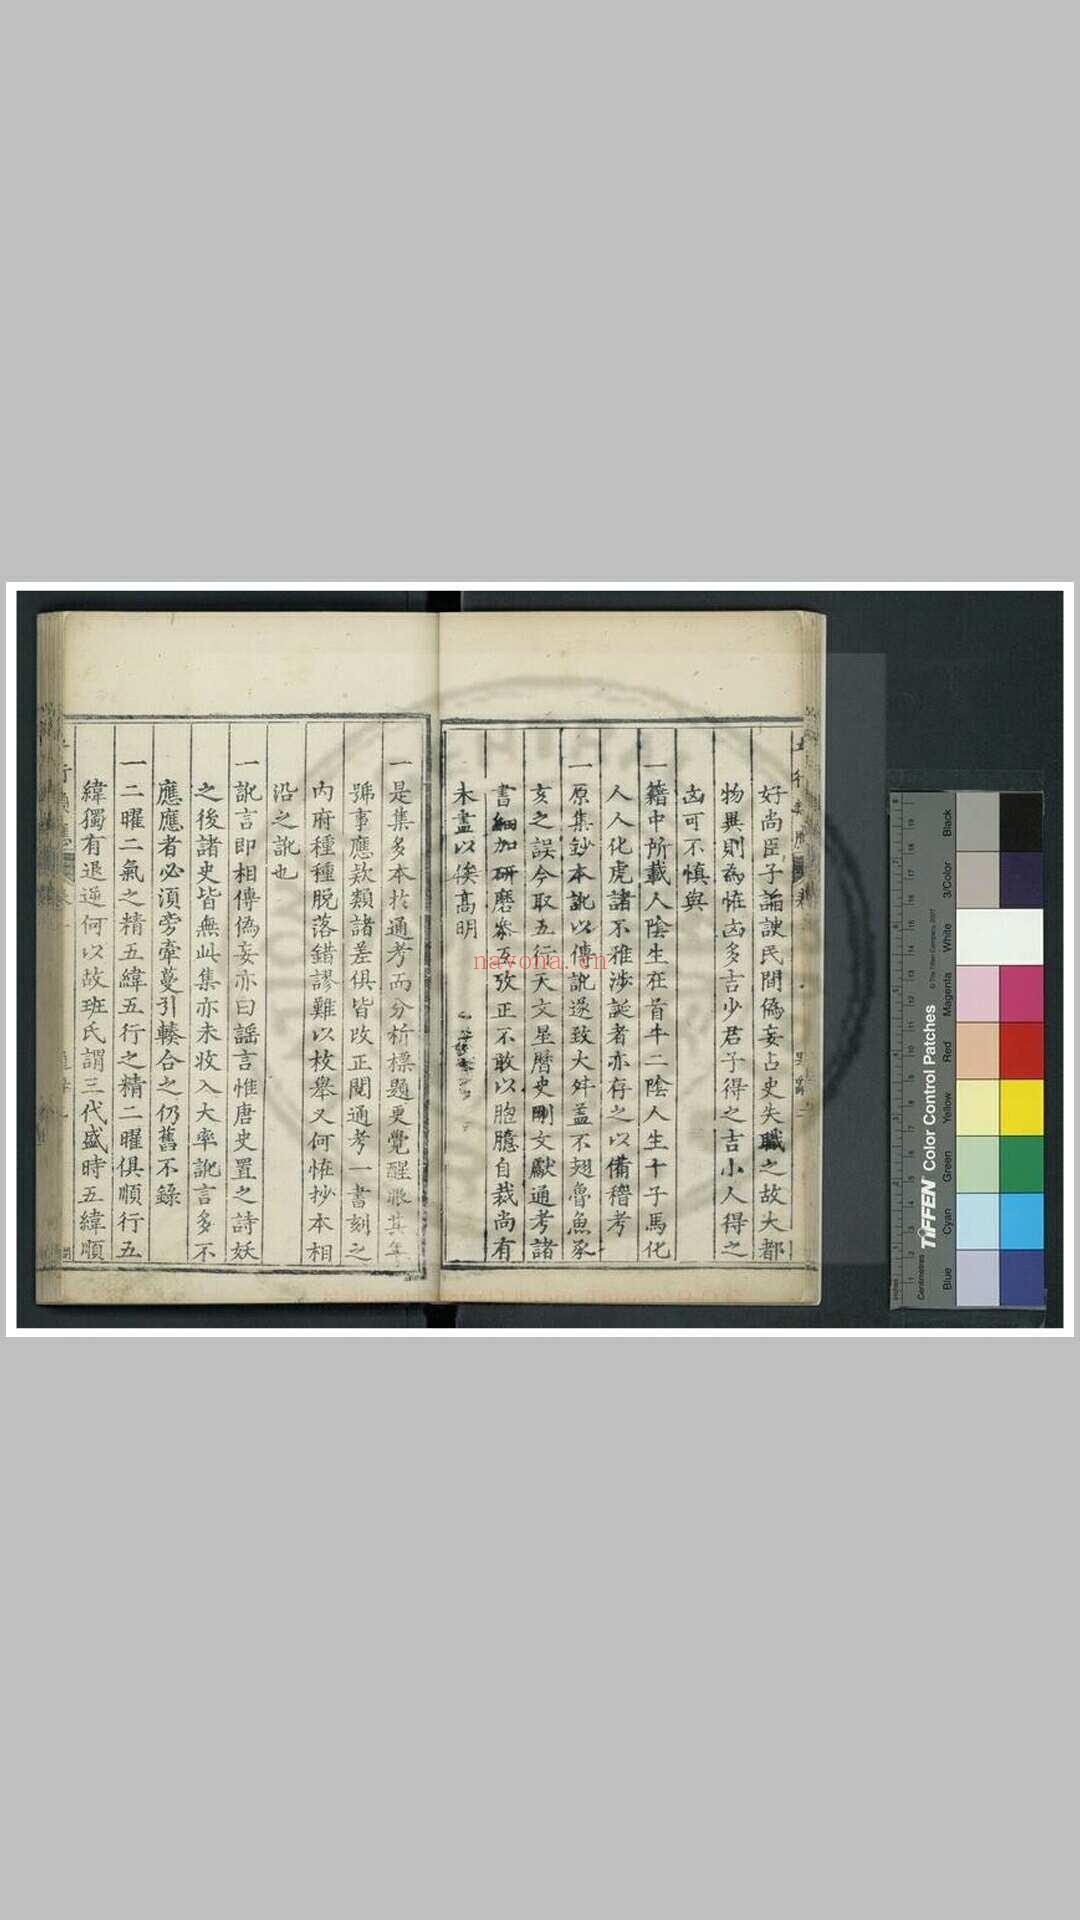 好尚臣子諭諛民間偽妄占史失職之故大都
物異則為恠凶多吉少君子得之吉小人得之
凶可不慎與
一籍中所載人陰生在首牛二陰人生十子馬化
人人化虎諸不雅涉誕者亦存之以備稽考
一原集鈔本訛以傳訛遂致大舛蓋不翅魯魚豕
亥之誤今取五行天文星曆史剛文獻通考諸
書細加研磨叅互攷正不敢以胞臆自裁尚有
未盡以俟高明
一是集多本於通考而分析標題更覺醒眼其年
號事應欵類諸差俱皆改正閱通考一書刻之
內府種種脫落錯謬難以枚舉又何恠抄本相
沿之訛也
一訛言即相傳偽妄亦曰謡言惟唐史置之詩妖
之後諸史皆無此集亦未收入大率訛言多不
應應者必湏旁牽蔓引輳合之仍舊不錄
一二曜二氣之精五緯五行之精二曜俱順行五
緯獨有退逆何以故班氏謂三代盛時五緯順
navona.cn
inches
Centimetres
TIFFEN Color Control Patches
© The Tiffen Company, 2007
Blue
Cyan
Green
Yellow
Red
Magenta
White
3/Color
Black